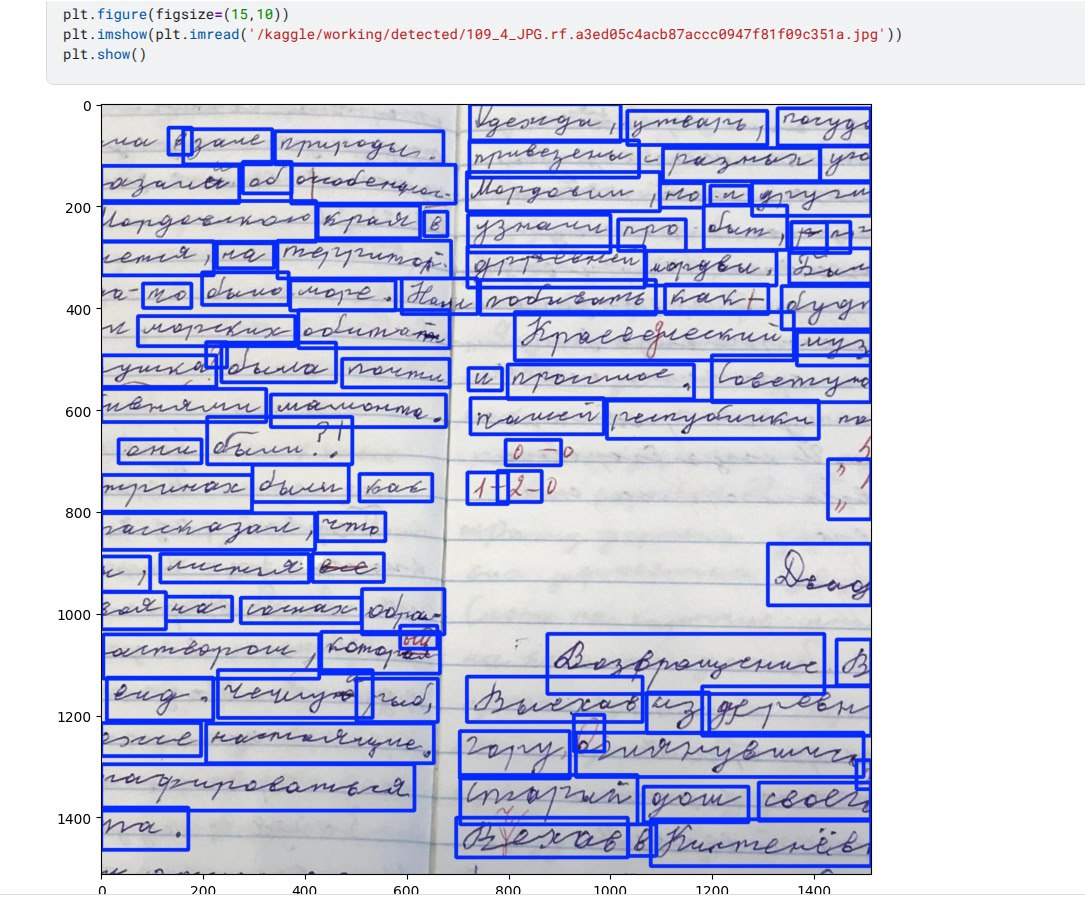 plt.figure(figsize=(15,10))
plt.imshow(plt.imread('/kaggle/working/detected/109_4_JPG.rf.a3ed05c4acb87accc0947f81f09c351a.jpg'))
plt.show()
0
200
400
600
800
1000
1200
1400
на взале природы.
азали об особеннос-
Мордовского края в
ется, на территор.
да-то было море.
и морских обитат
ушка была почти
ивнями мамонта.
они были?!
тринах были как
рассказал, что
и, листья все
вой на соснах обра-
створом, который
вид. чешую рыб,
оже настоящие.
графироваться
та.
Одежда, утварь, посуда
привезены с разных уго
Мордовии, но и други
узнали про быт,
древней мордвы. Был
побывать как будт
Краеведческий муз
и прошлое. Советую
нашей республики по
0 – 0
1–2–0
Двад
Возвращение В
Выехав из деревн
гору, оглянувшись
старый дом своего
Въехав в Кистенёв
0 200 400 600 800 1000 1200 1400